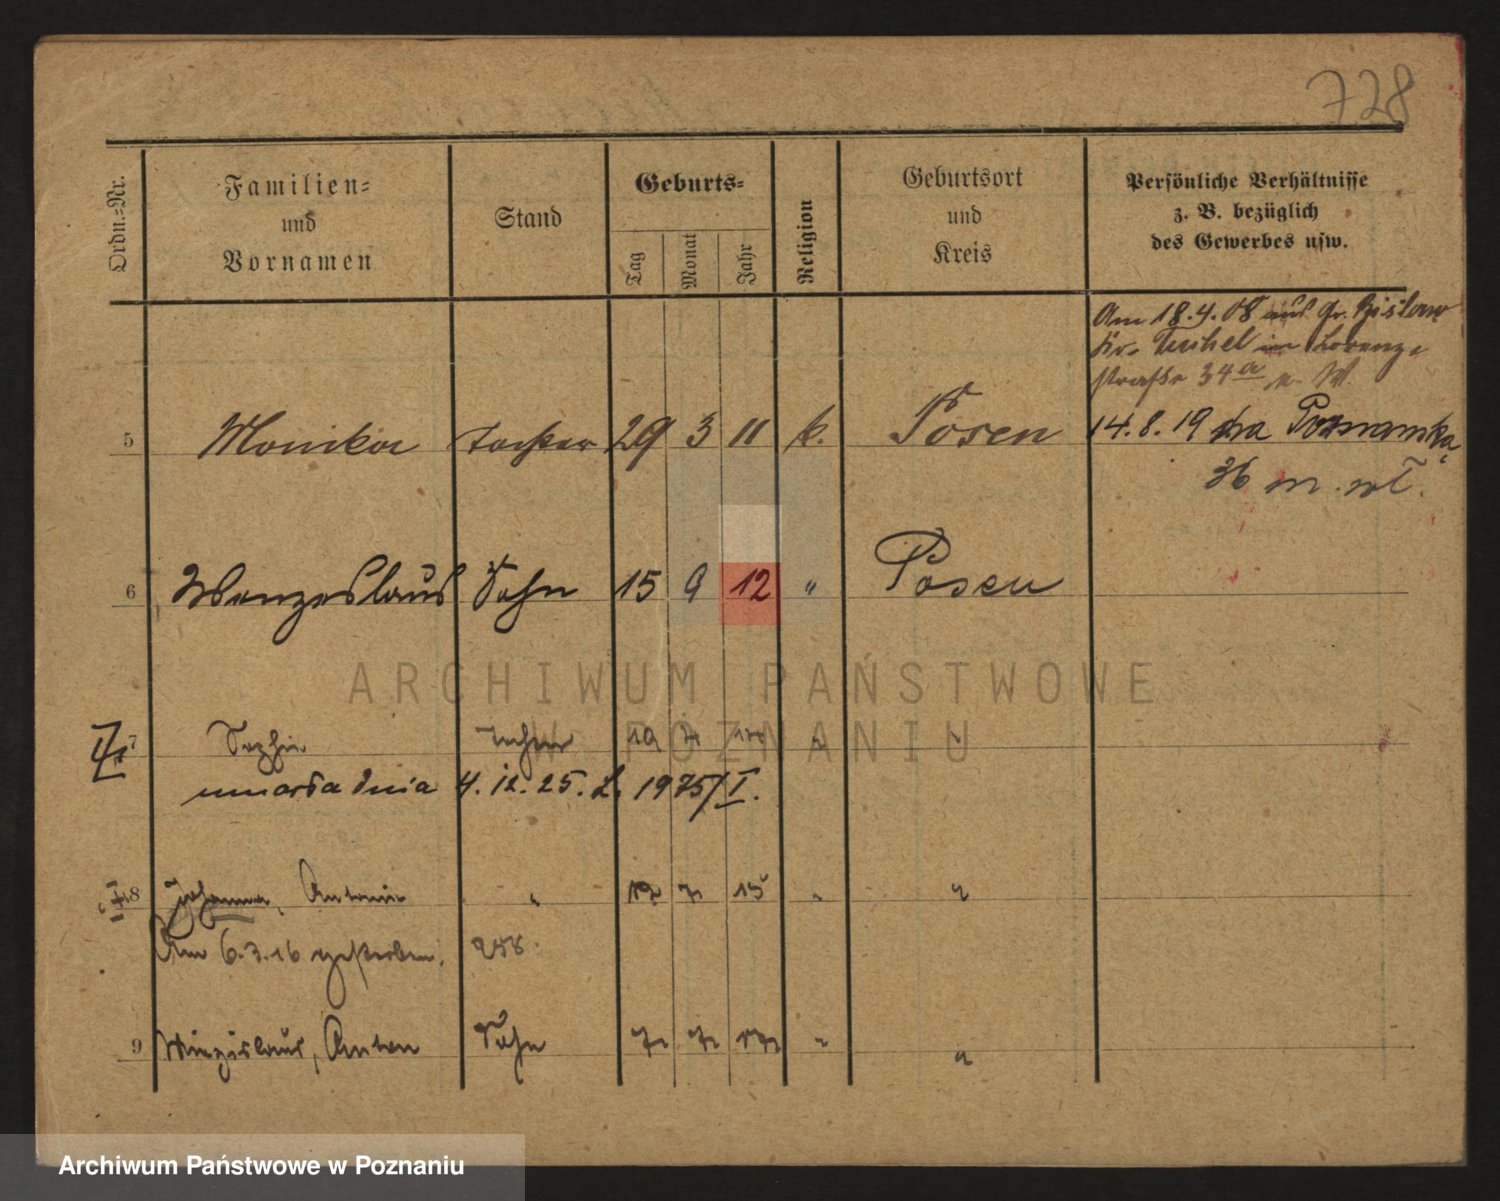 728
Ordn.-Nr.
Familien-
und
Vornamen
Stand
Geburts-
Tag
Monat
Jahr
Religion
Geburtsort
und
Kreis
Persönliche Verhältnisse
z. B. bezüglich
des Gewerbes usw.
Am 18.4.08 aus Gr. Bislaw
Kr. Tuchel in Lorenz-
straße 34a
5 Monika Tochter 29 3 11 k. Posen 14.8.19 na Poznańska
36
6 Wenzeslaus Sohn 15 9 12 " Posen
7 Sophie Tochter 19 " "
umarła dnia 4.12.25. L. 1975/I.
8 Johanna, Antonie " 7 15 " "
Am 6.3.16 gestorben.
9 Miezislaus, Anton Sohn 7 7 17 " "
ARCHIWUM PAŃSTWOWE
W POZNANIU
Archiwum Państwowe w Poznaniu